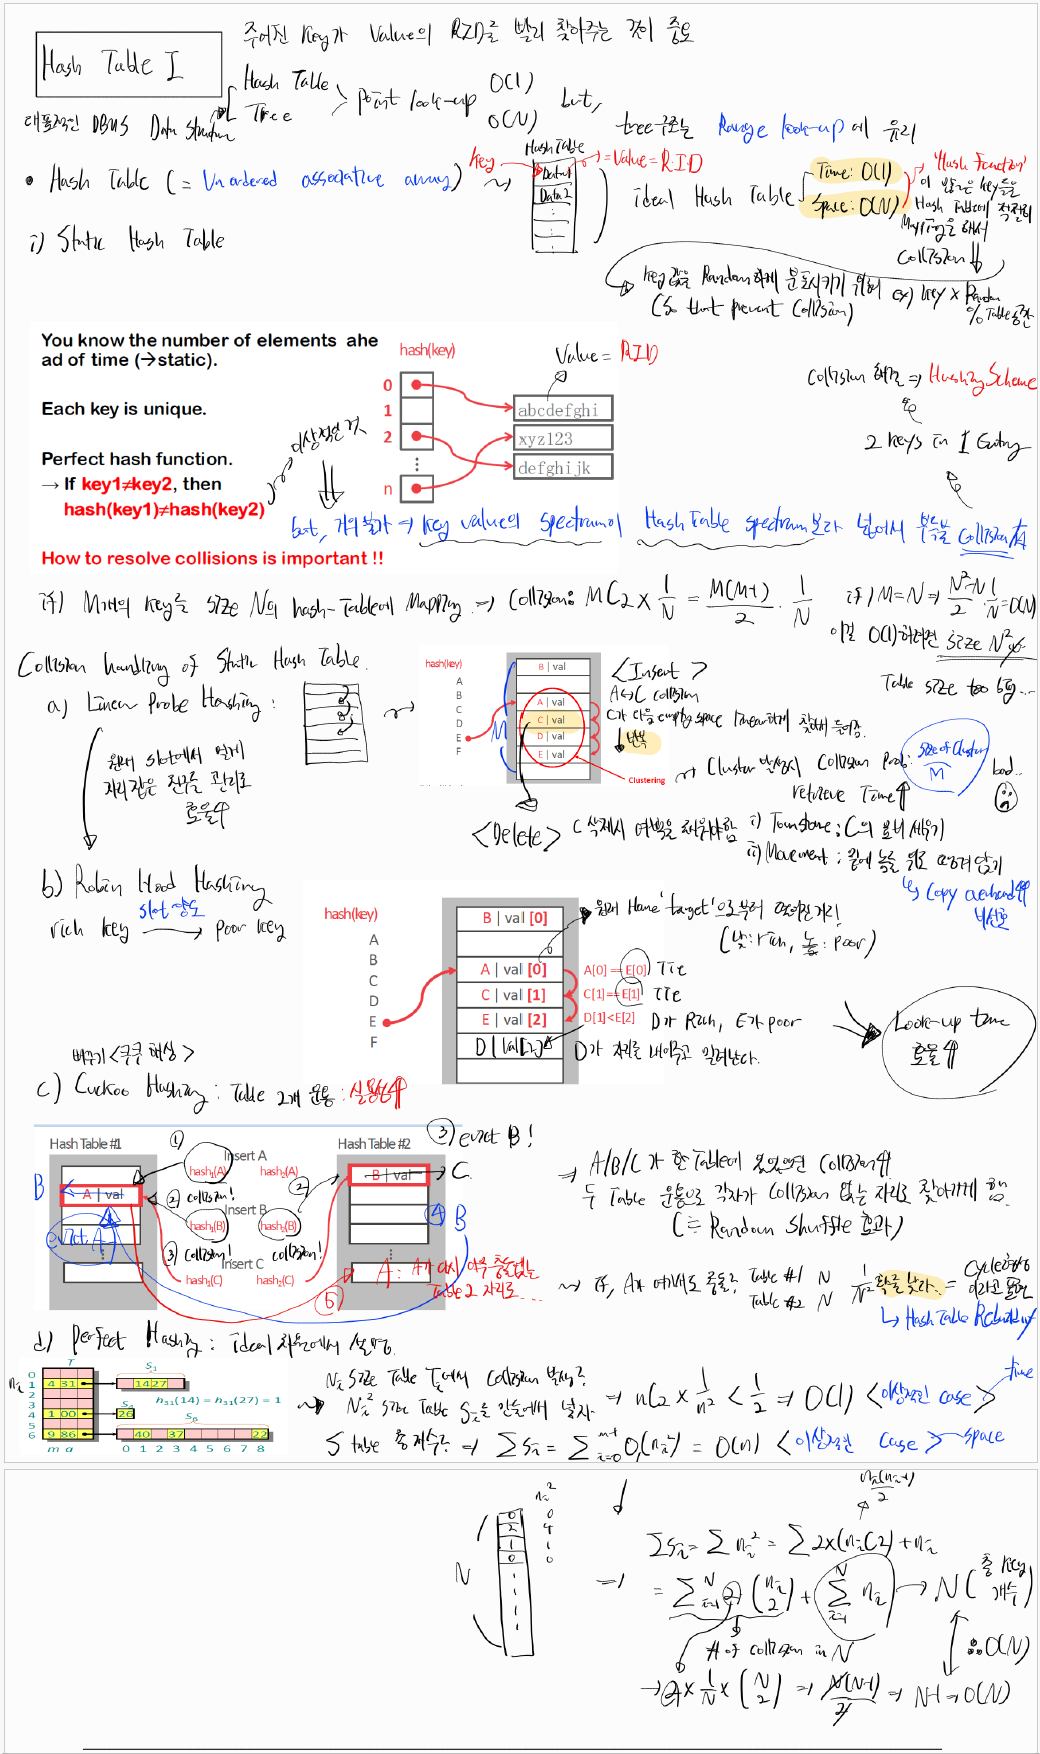 주어진 Key가 Value의 RID를 빨리 찾아주는 것이 중요
Hash Table I
대표적인 DBMS Data Structure
Hash Table
Tree
point look-up
O(1)
O(N)
but,
tree구조는 Range look-up에 유리
• Hash Table (= Unordered associative array)
Key
Hash Table
Data1
Data2
= Value = RID
ideal Hash Table
Time: O(1)
Space: O(N)
'Hash Function'
이 많은 key들을
Hash Table에 적절히
Mapping을 해서
Collision ↓
i) Static Hash Table
Key 값을 Random하게 분포시키기 위해 ex) key × Random
% Table
(So that prevent Collision)
You know the number of elements ahe
ad of time (→static).
Each key is unique.
Perfect hash function.
→ If key1≠key2, then
hash(key1)≠hash(key2)
How to resolve collisions is important !!
이상적인 것
hash(key)
0
1
2
⋮
n
abcdefghi
xyz123
defghijk
Value = RID
Collision 해결 ⇒ Hashing Scheme
2 keys in 1 Entry
but, 거의 불가 → Key value의 spectrum이 Hash Table spectrum보다 넓어서 Collision
if) M개의 key를 size N의 hash-Table에 Mapping ⇒ Collision: MC2 × 1/N = M(M-1)/2 · 1/N
if) M=N ⇒ N²-N/2 · 1/N = O(N)
이걸 O(1)하려면 size N²
Table size too big...
Collision handling of Static Hash Table.
a) Linear Probe Hashing :
원래 slot에서 멀게
자리잡은 친구를 관리로
효율↑
hash(key)
A
B
C
D
E
F
M
B | val
A | val
C | val
D | val
E | val
Clustering
<Insert>
A↔C collision
C가 다음 empty space linear하게 찾아 들어감.
반복
Cluster 발생시 Collision Prob: size of Cluster / M
retrieve Time↑
bad..
<Delete> C 삭제시 여백을 채워야함
i) Tombstone : C의 묘비 세우기
ii) Movement : 밑에 놈을 위로 옮겨 담기
↳ Copy overhead↑
비선호
b) Robin Hood Hashing
rich key → poor key
slot 양도
hash(key)
A
B
C
D
E
F
B | val [0]
A | val [0]
C | val [1]
E | val [2]
D | val[2]
원래 Home 'target'으로부터 떨어진 거리!
(낮: rich, 높: poor)
A[0] == E[0] Tie
C[1] == E[1] Tie
D[1] < E[2] D가 Rich, E가 poor
D가 자리를 내어주고 밀려난다.
Look-up time
효율↑
뻐꾸기 <쿠쿠 해싱>
c) Cuckoo Hashing : Table 2개 운용 : 실용성↑
Hash Table #1
Hash Table #2
A | val
B | val
B
evict A
① Insert A
hash₁(A) hash₂(A)
② collision!
Insert B
hash₁(B) hash₂(B)
③ collision! collision!
Insert C
hash₁(C) hash₂(C)
③ evict B!
C
④ B
⑤ A : A가 다시 아주 충돌없는
Table 2 자리로...
⇒ A/B/C가 한 Table에 있었으면 Collision↑
두 Table 운용으로 각자가 Collision 없는 자리로 찾아가게 함.
(≒ Random Shuffle 효과)
if, A가 여기서도 충돌? Table #1 N
Table #2 N
1/N² 확률 낮다. = cycle현상
이라고 불림
↳ Hash Table Rebuilding
d) Perfect Hashing : ideal 차원에서 설명.
T
0
1
2
3
4
5
6
4 31
1 00
9 86
m a
S₁
14 27
h₃₁(14) = h₃₁(27) = 1
S₄
26
S₆
40 37 22
0 1 2 3 4 5 6 7 8
nᵢ size Table Tᵢ에서 Collision 발생?
Nᵢ² size Table Sᵢ을 만들어서 넣자.
⇒ nC2 × 1/n² < 1/2 ⇒ O(1) <이상적인 case> time
S table 총 개수? ⇒ ΣSᵢ = Σ O(nᵢ²) = O(n) <이상적인 case> space
nᵢ²
0 0
2 4
1 1
0 0
N
nᵢ(nᵢ-1)/2
ΣSᵢ = Σnᵢ² = Σ2×(nᵢC2) + nᵢ
= Σ 2 (nᵢ 2) + Σ nᵢ → N (총 key 개수)
# of collision in N
∴ O(N)
→ 2 × 1/N × (N 2) ⇒ N(N-1)/2 ⇒ N-1 → O(N)